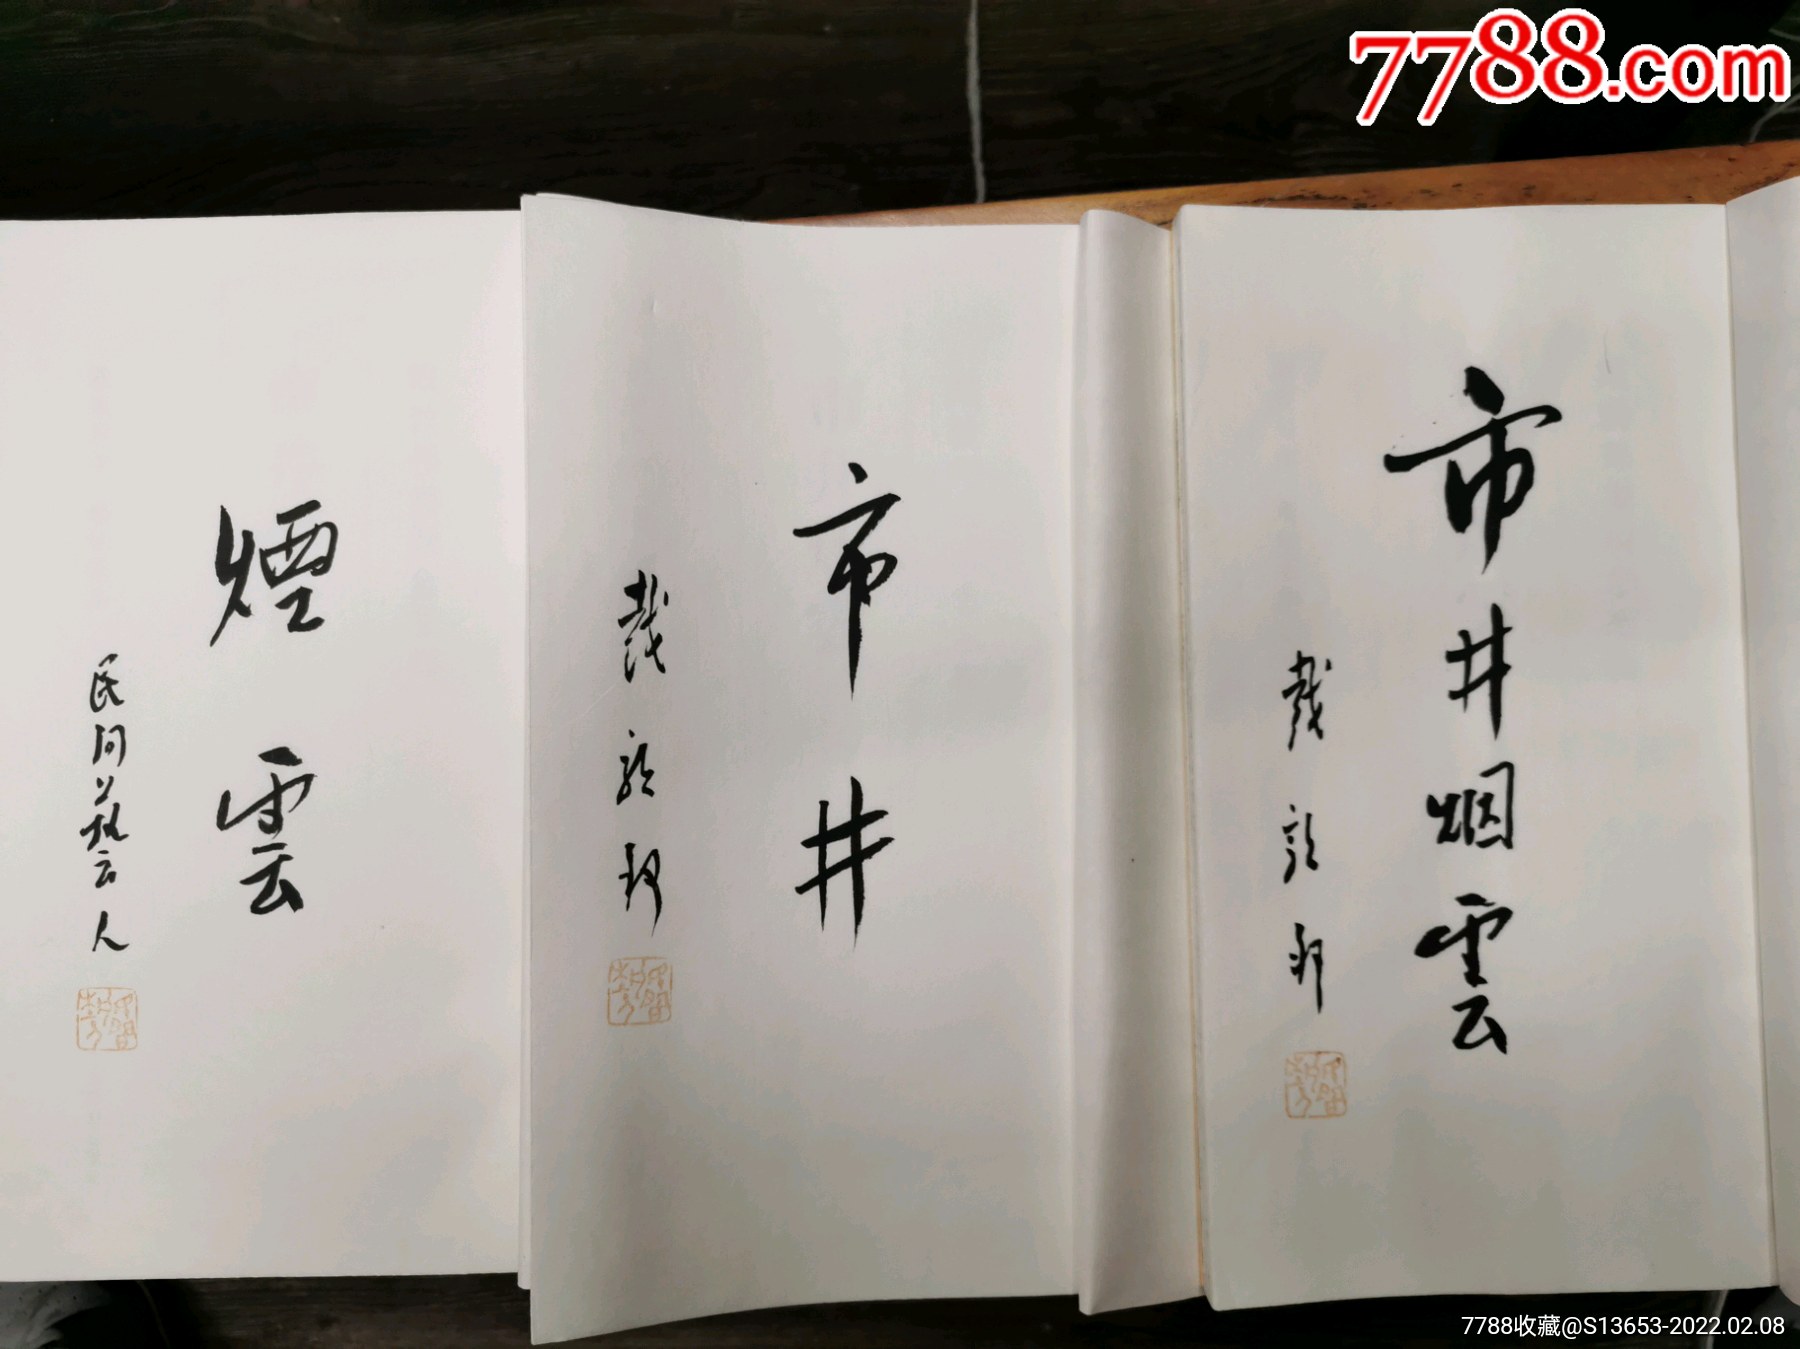 7788.com
市井烟雲
戴敦邦
市井
戴敦邦
煙雲
民间艺藝人
7788收藏@S13653-2022.02.08